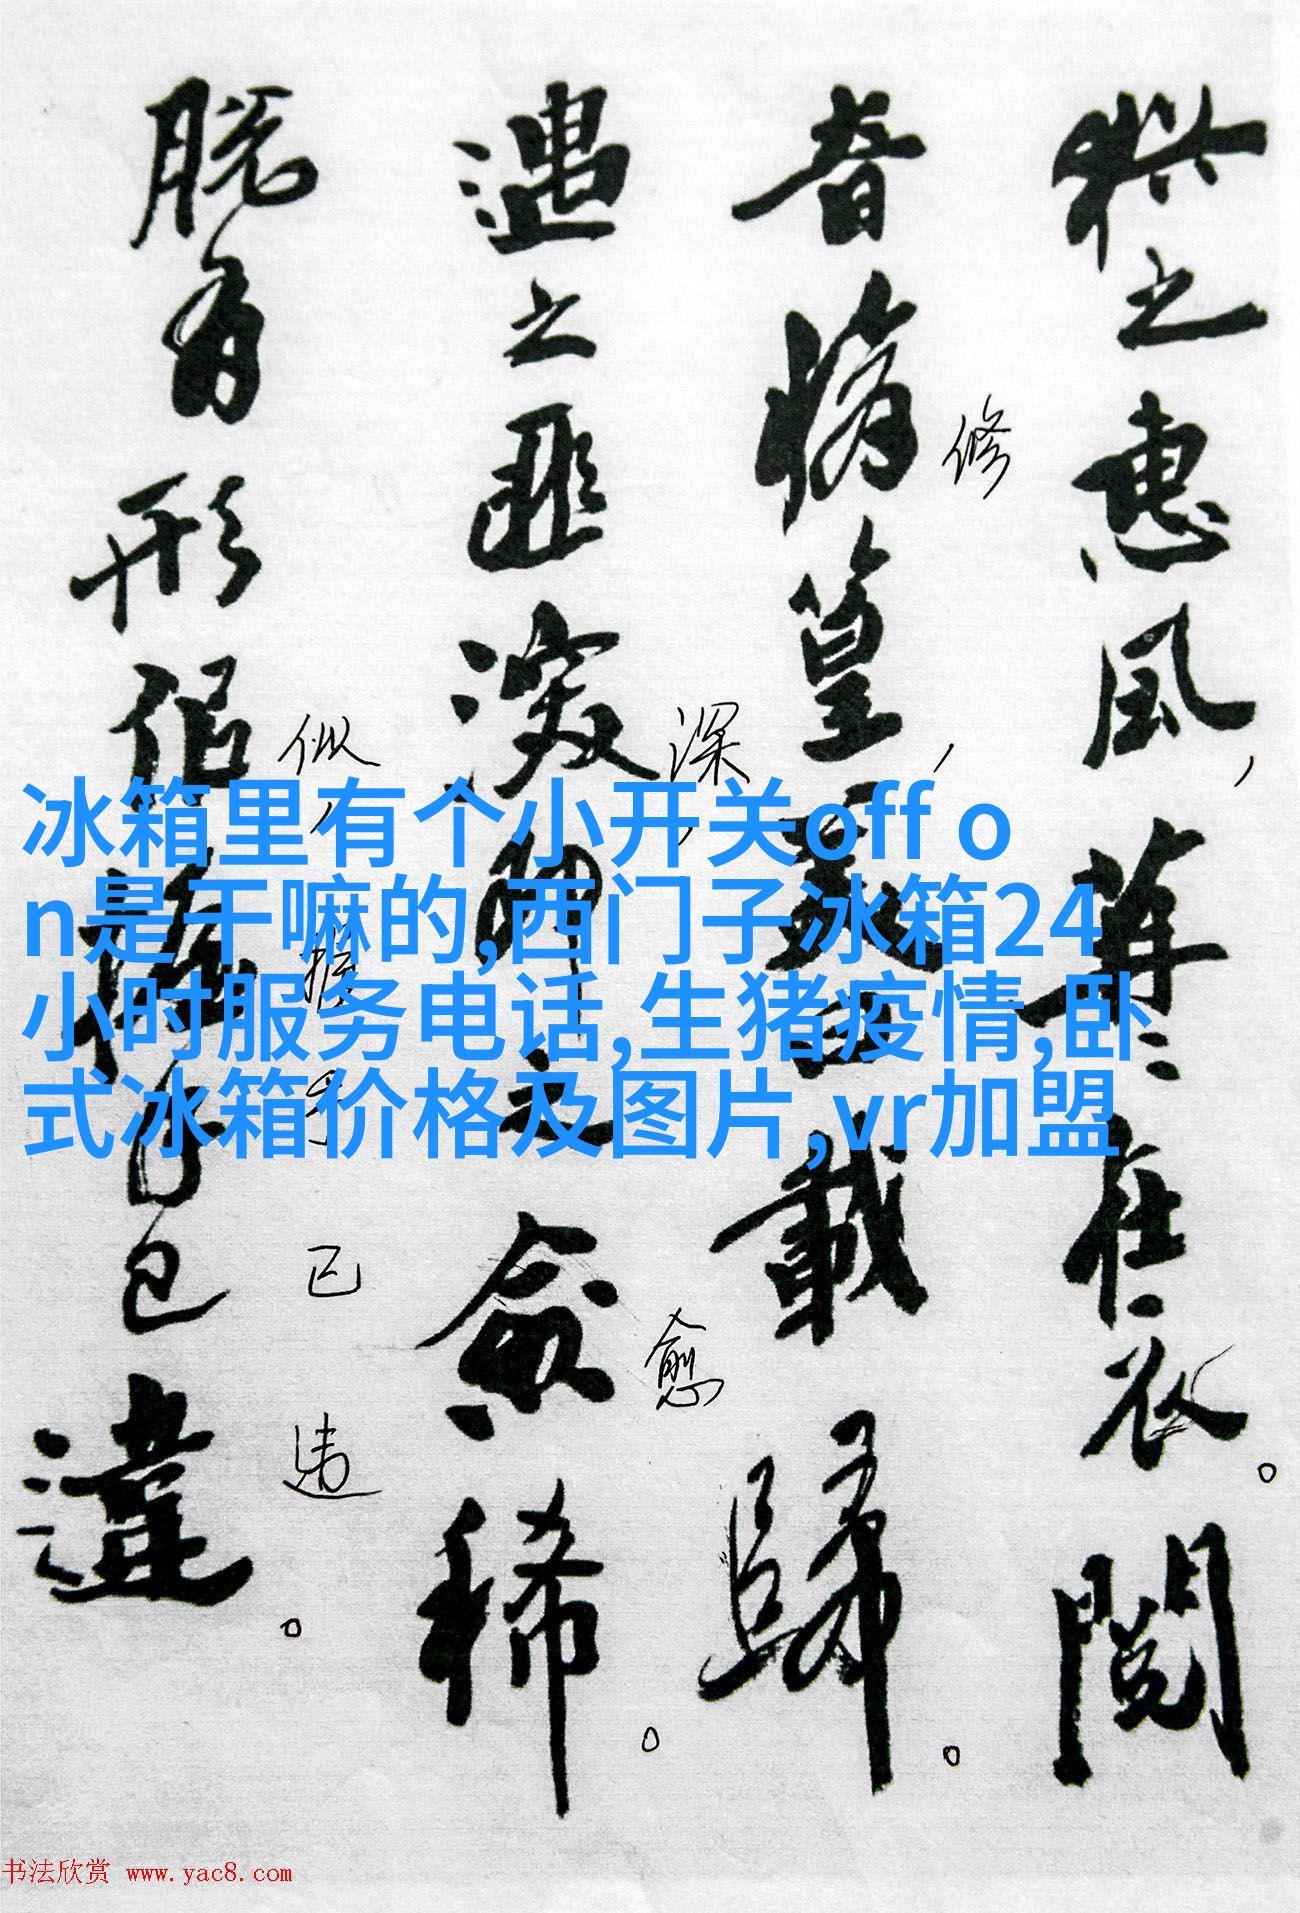 猶之惠風，苒苒在衣。閲
音脩篁，美曰載歸。
修
遇之匪深，即之愈稀。
深
愈
脱有形似握手已違。
似，
握
手
已
违
冰箱里有个小开关off o
n是干嘛的,西门子冰箱24
小时服务电话,生猪疫情,卧
式冰箱价格及图片,vr加盟
书法欣赏 www.yac8.com